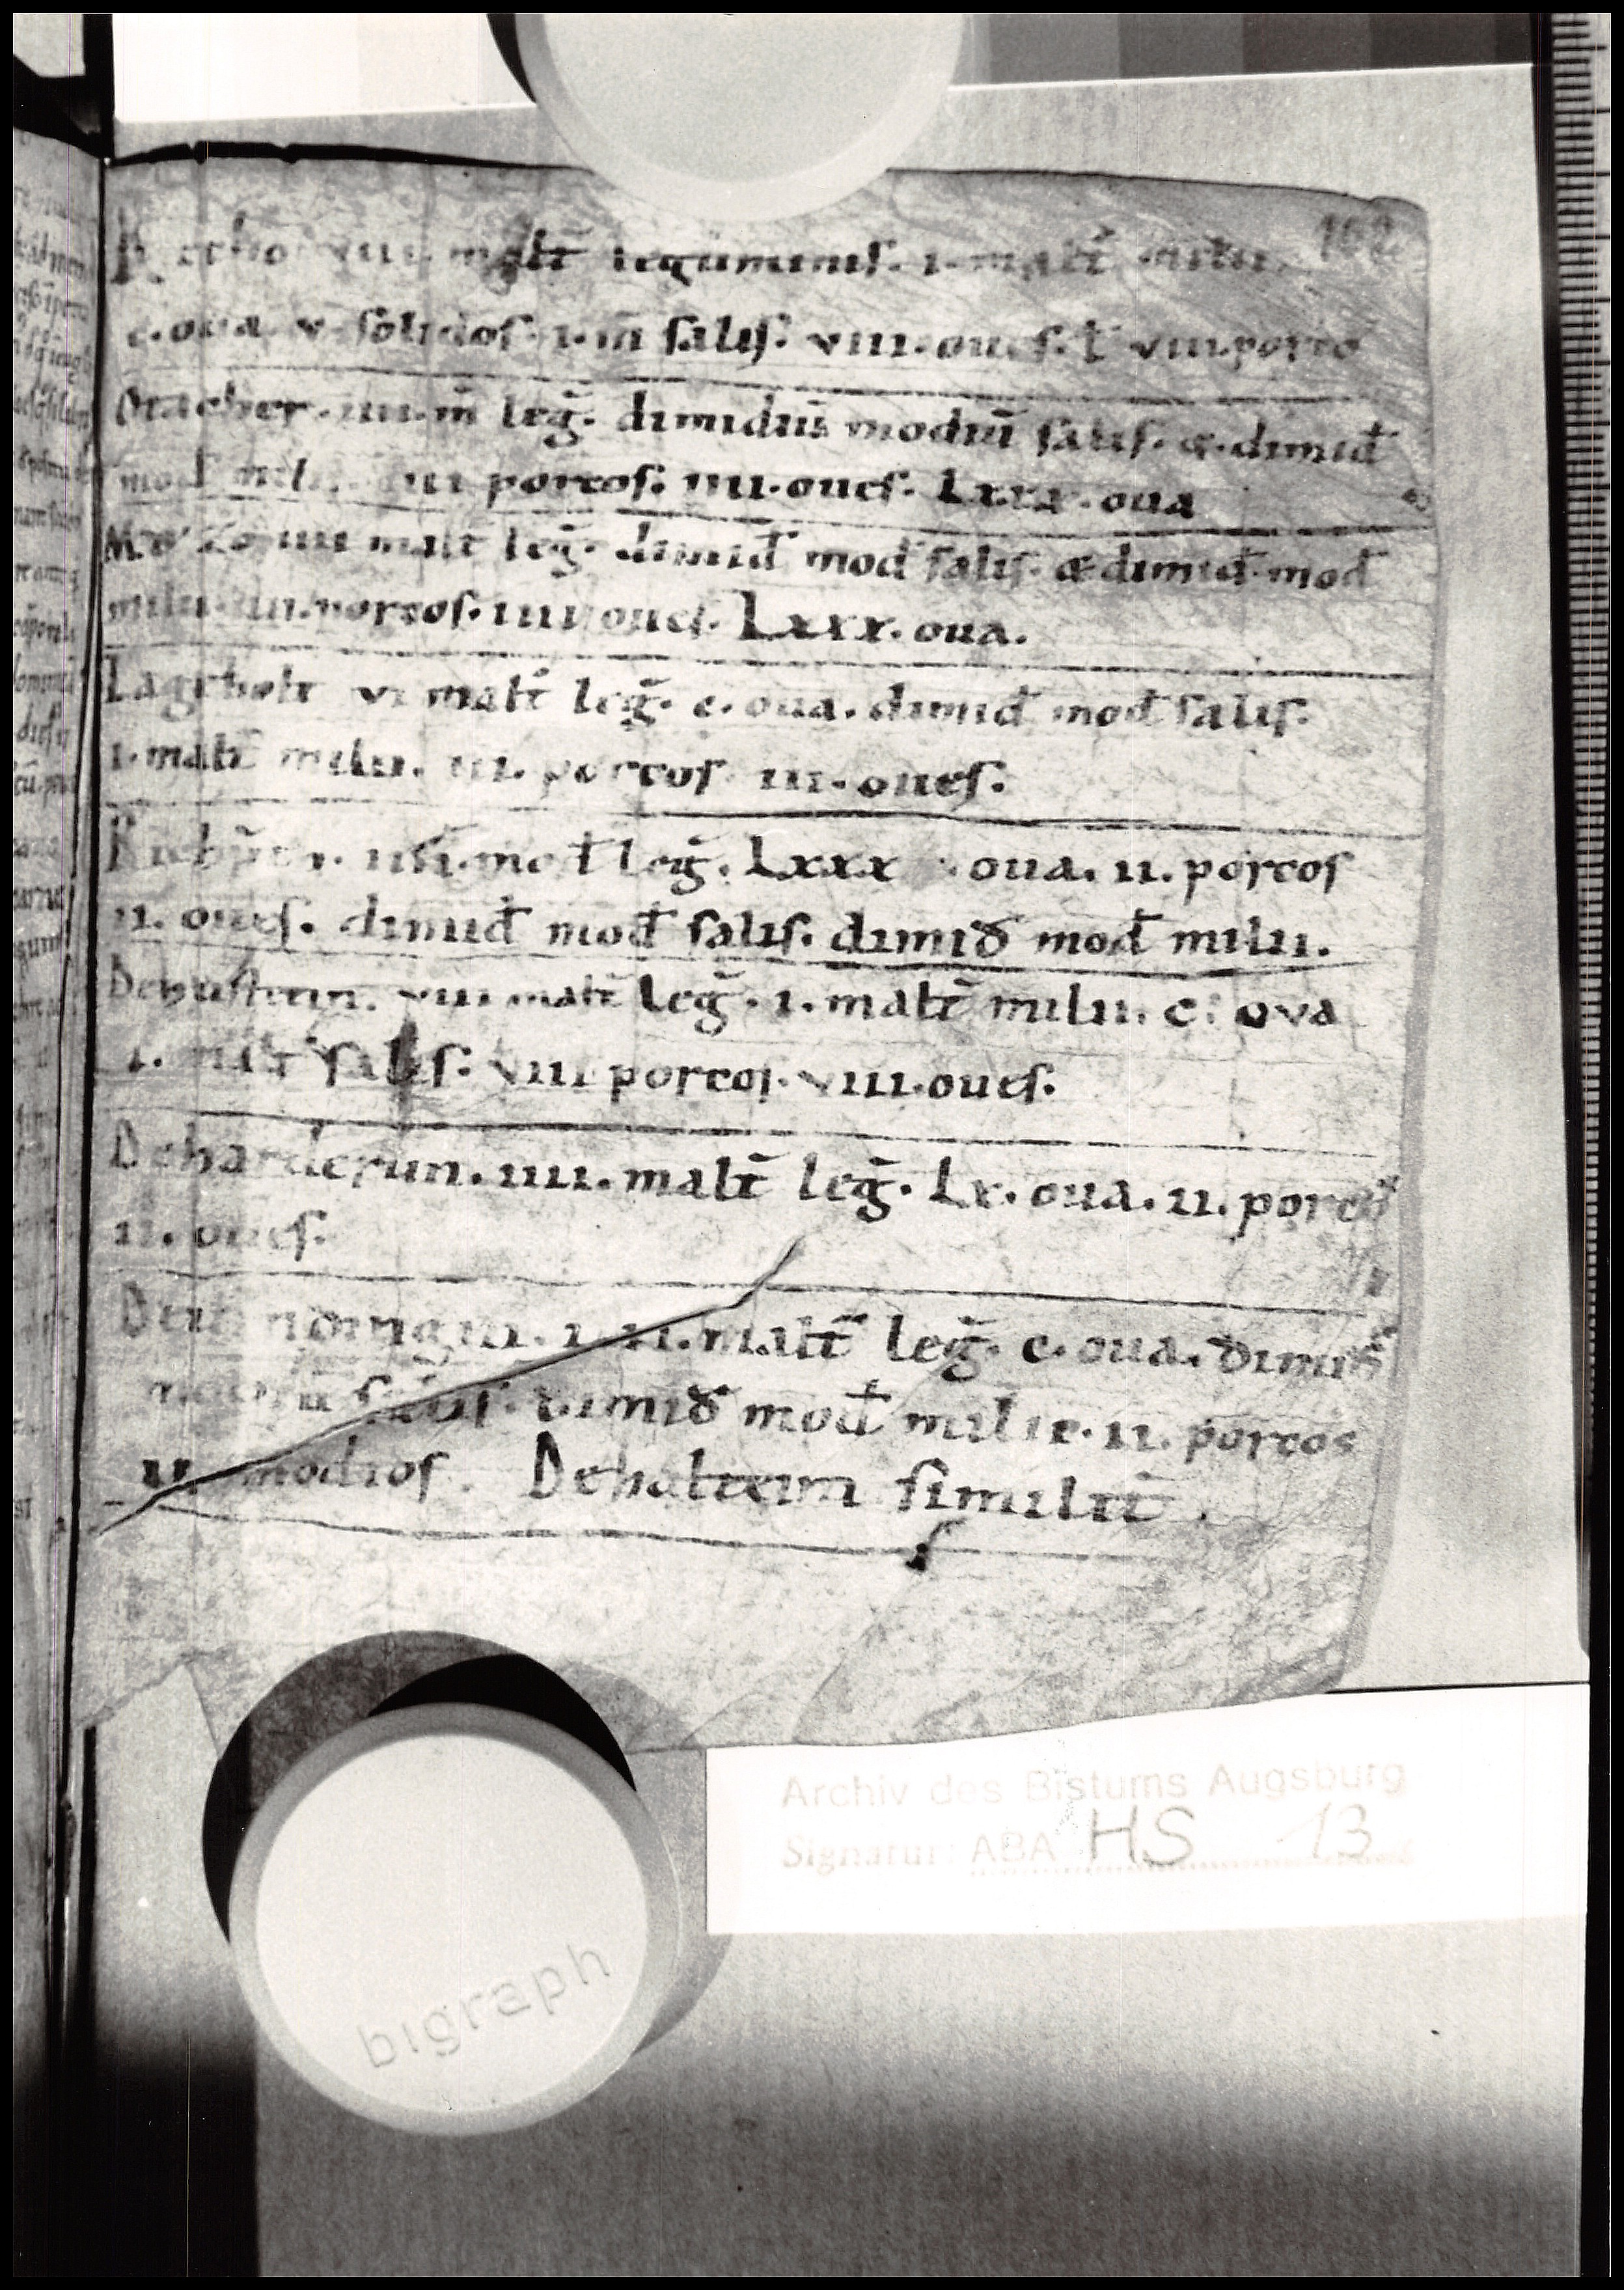 malt̄ leguminis. i. malt̄ milii. 102
c. oua v. solidos. i. m̄ salis. viii. oues. ł viii. porco
iiii. m̄ leḡ. dimidiū modiū salis. &. dimid̄
mod̄ milii. iiii porcos. iiii. oues. Lxxx. oua
iiii malt̄ leḡ. dimid̄ mod̄ salis. & dimid̄. mod̄
milii. iiii. porcos. iiii oues. Lxxx. oua.
vi malt̄ leḡ. c. oua. dimid̄ mod̄ salis.
i. malt̄ milii. iii. porcos iii. oues.
mod̄ leḡ. Lxxx oua. ii. porcos
ii. oues. dimid̄ mod̄ salis. dimid̄ mod̄ milii.
viii malt̄ leḡ. i. malt̄ milii. c. ova
i. malt̄ salis. viii porcos. viii. oues.
Deharderun. iiii. malt̄ leḡ. Lx. oua. ii. porcos
ii. oues.
malt̄ leḡ. c. oua. dimid̄
salis. dimid̄ mod̄ milii. ii. porcos
ii modios. Dehalteim similit̄.
Archiv des Bistums Augsburg
Signatur: ABA HS 13
bigraph